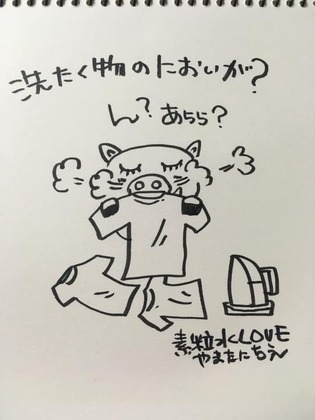 洗たく物のにおいが?
ん?あらら?
素粒水LOVE
やまたにちえ